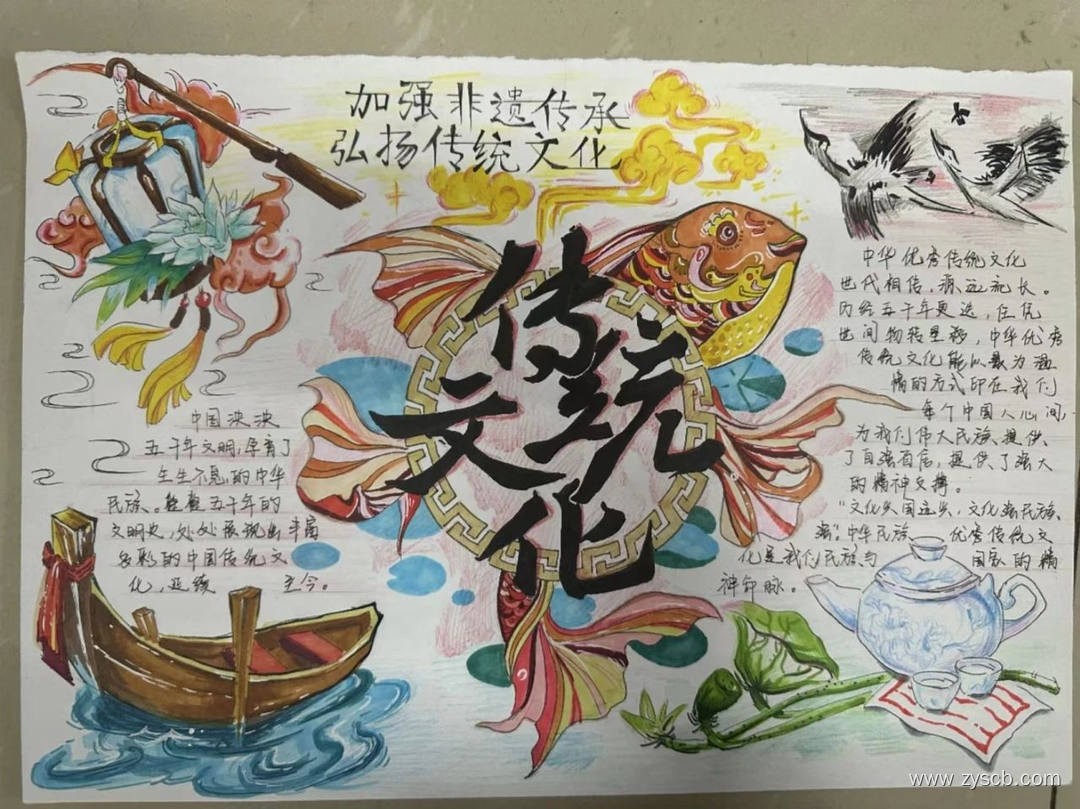 加强非遗传承
弘扬传统文化
传统
文化
中国泱泱
五千年文明,孕育了
生生不息的中华
民族。 五千年的
文明史,处处展现出丰富
多彩的中国传统文
化,延续 至今。
中华优秀传统文化
世代相传,源远流长。
历经五千年更迭,任凭
世间物转星移,中华优秀
传统文化能以最为
的方式印在我们
每个中国人心间,
为我们伟大民族提供
了自强自信,提供了强大
的精神支撑。
“文化兴国运兴,文化强民族
强”中华民族 优秀传统文
化是我们民族与 国家的精
神命脉。
www.zyscb.com